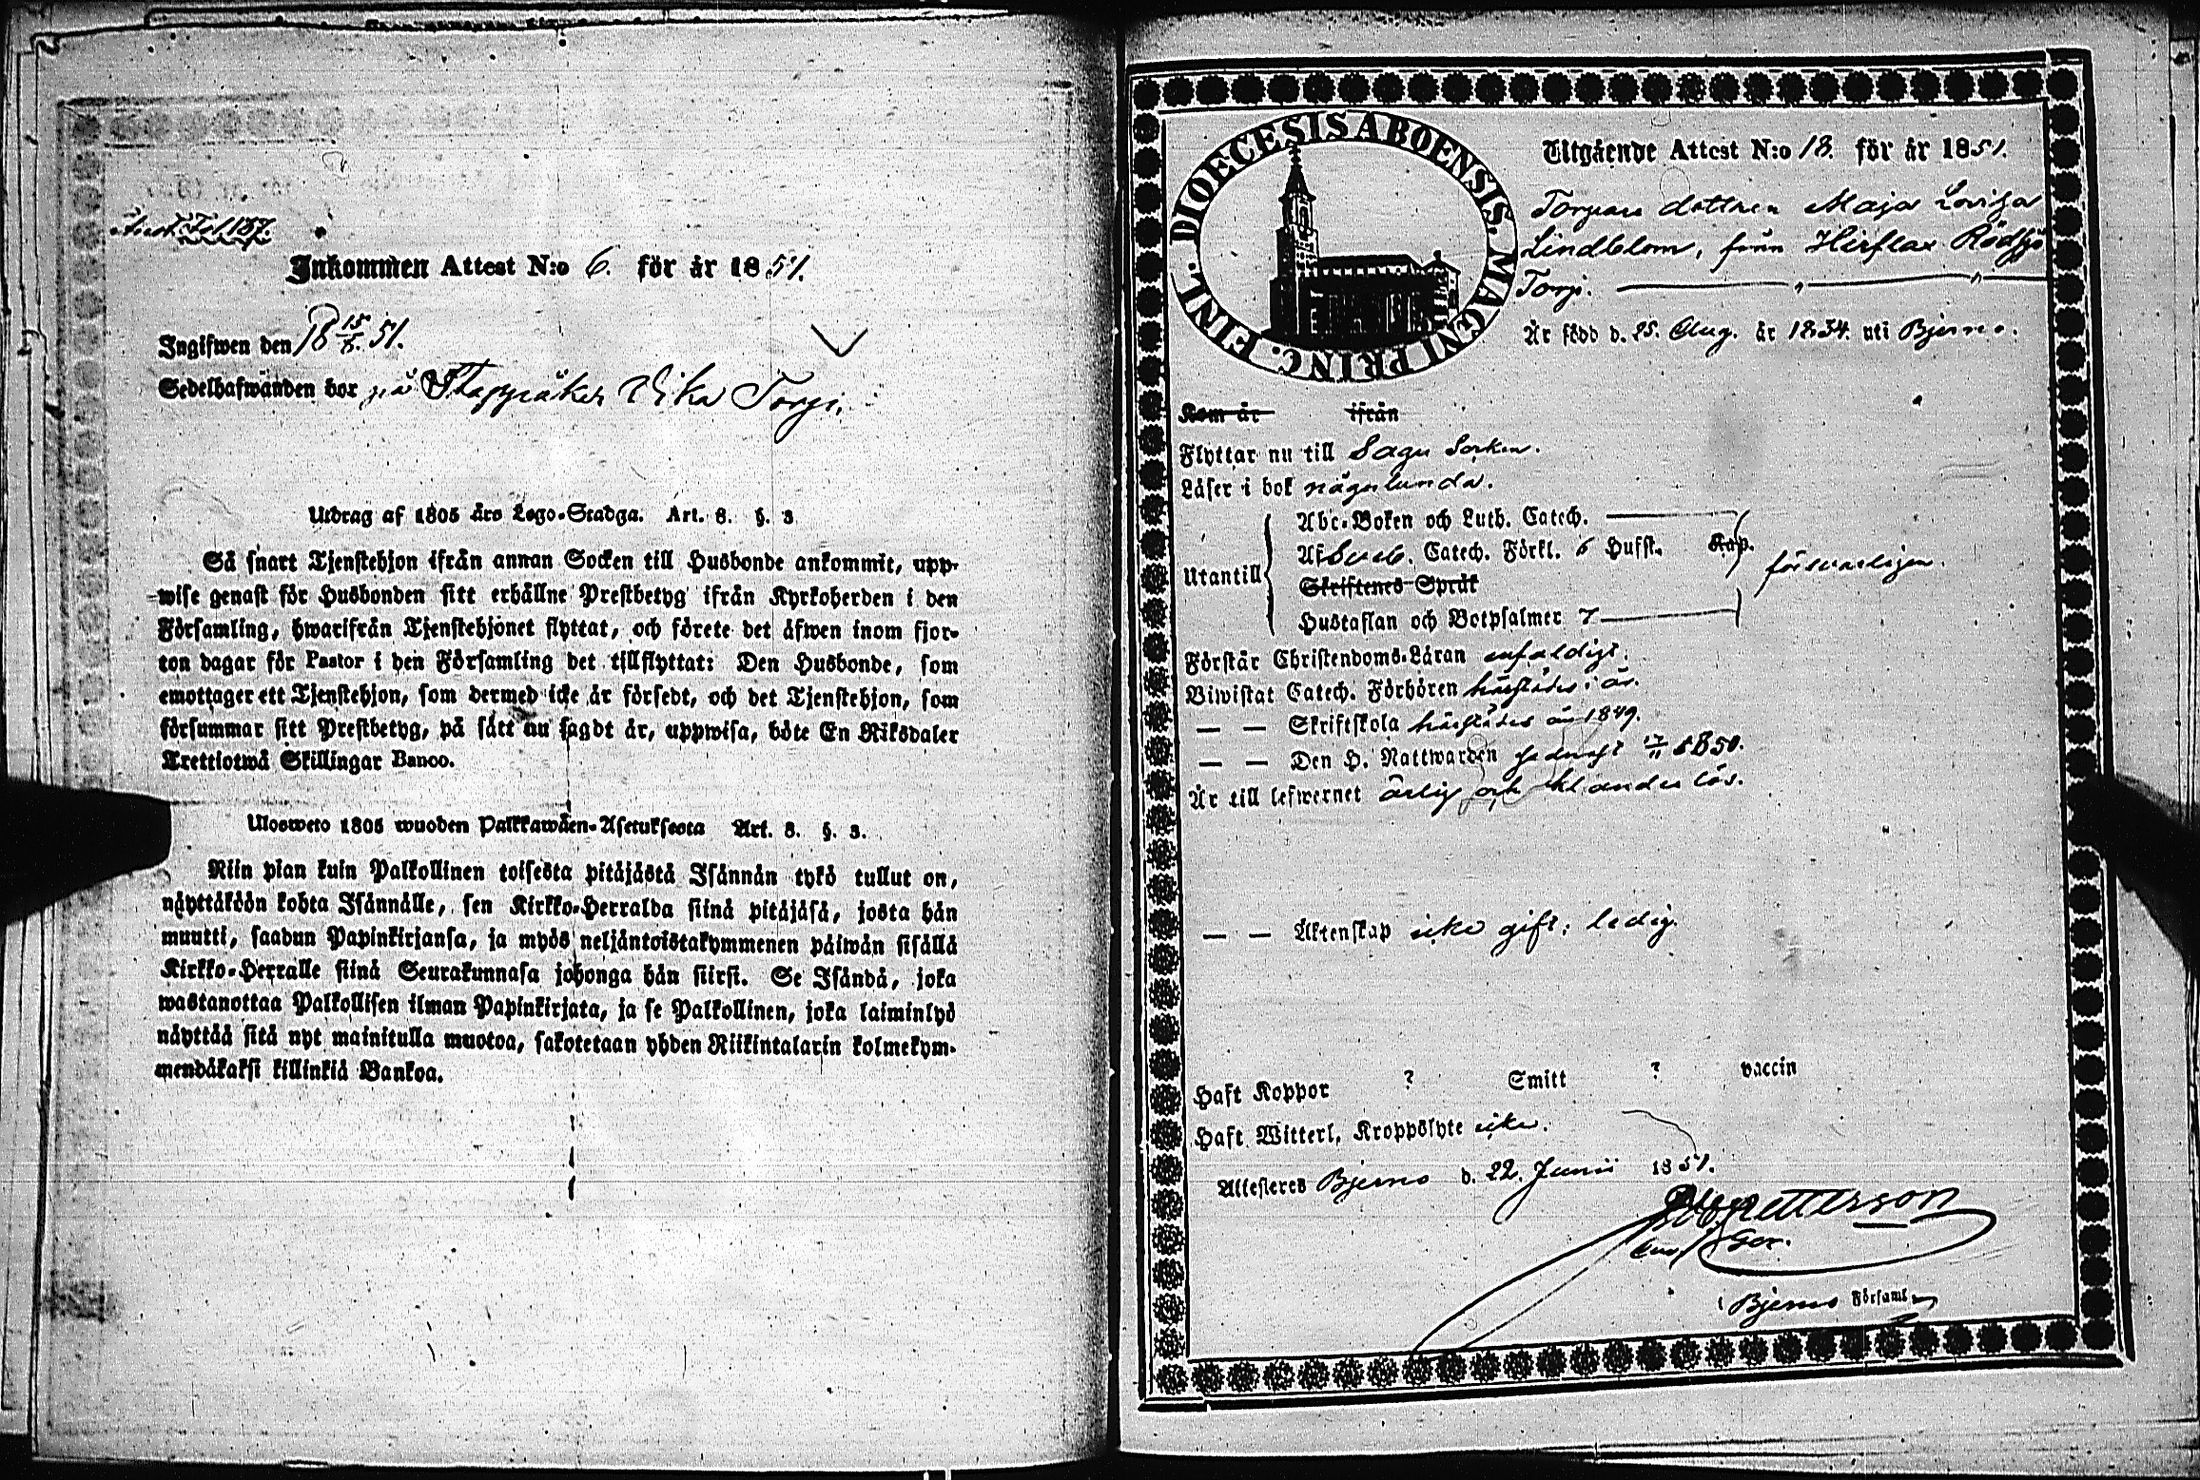 Fol. 187.
Inkommen Attest N:o 6. för år 1851.
Ingifwen den 18 15/8. 51.
Sedelhafwanden bor på Stappåker Vika Torp.
Utdrag af 1805 års Lego-Stadga. Art. 8. §. 3
Så snart Tjenstehjon ifrån annan Socken till Husbonde ankommit, upp-
wise genast för Husbonden sitt erhållne Prestbetyg ifrån Kyrkoherden i den
Församling, hwarifrån Tjenstehjonet flyttat, och förete det äfwen inom fjor-
ton dagar för Pastor i den Församling det tillflyttat: Den Husbonde, som
emottager ett Tjenstehjon, som dermed icke är försedt, och det Tjenstehjon, som
försummar sitt Prestbetyg, på sätt nu sagdt är, uppwisa, böte En Riksdaler
Trettiotwå Skillingar Banco.
Ulosweto 1805 wuoden Palkkawäen-Asetuksesta Art. 8. §. 3.
Niin pian kuin Palkollinen toisesta pitäjästä Isännän tykö tullut on,
näyttäköön kohta Isännälle, sen Kirkko-Herralda siinä pitäjäsä, josta hän
muutti, saadun Papinkirjansa, ja myös neljäntoistakymmenen päiwän sisällä
Kirkko-Herralle siinä Seurakunnasa johonga hän siirsi. Se Isändä, joka
wastanottaa Palkollisen ilman Papinkirjata, ja se Palkollinen, joka laiminlyö
näyttää sitä nyt mainitulla muotoa, sakotetaan yhden Riikintalarin kolmekym-
mendäkaksi killinkiä Bankoa.
DIOECESIS ABOENSIS. MAGNI PRINC. FINL.
Utgående Attest N:o 18. för år 1851.
Torpare dottren Maja Lovisa
Lindblom, från Hirflax Rödsjö
Torp.
Är född d. 25. Aug. år 1834. uti Bjerno.
Kom år ifrån
Flyttar nu till Sagu Socken.
Läser i bok någorlunda.
Abc-Boken och Luth. Catech.
Af Sveb. Catech. Förkl. 6 Hufst. Kap.
Utantill försvarligen.
Skriftenes Språk
Hustaflan och Botpsalmer 7
Förstår Christendoms-Läran enfaldigt.
Biwistat Catech. Förhören härstädes i år.
— — Skriftskola härstädes år 1849.
— — Den H. Nattwarden 1850.
Är till lefwernet ärlig och klanderlös.
— — Äktenskap icke gift; ledig.
Haft Koppor ? Smitt ? vaccin
Haft Witterl. Kroppslyte icke.
Attesteres Bjerno d. 22. Junii 1851.
Petterson
i Bjerno Församl.